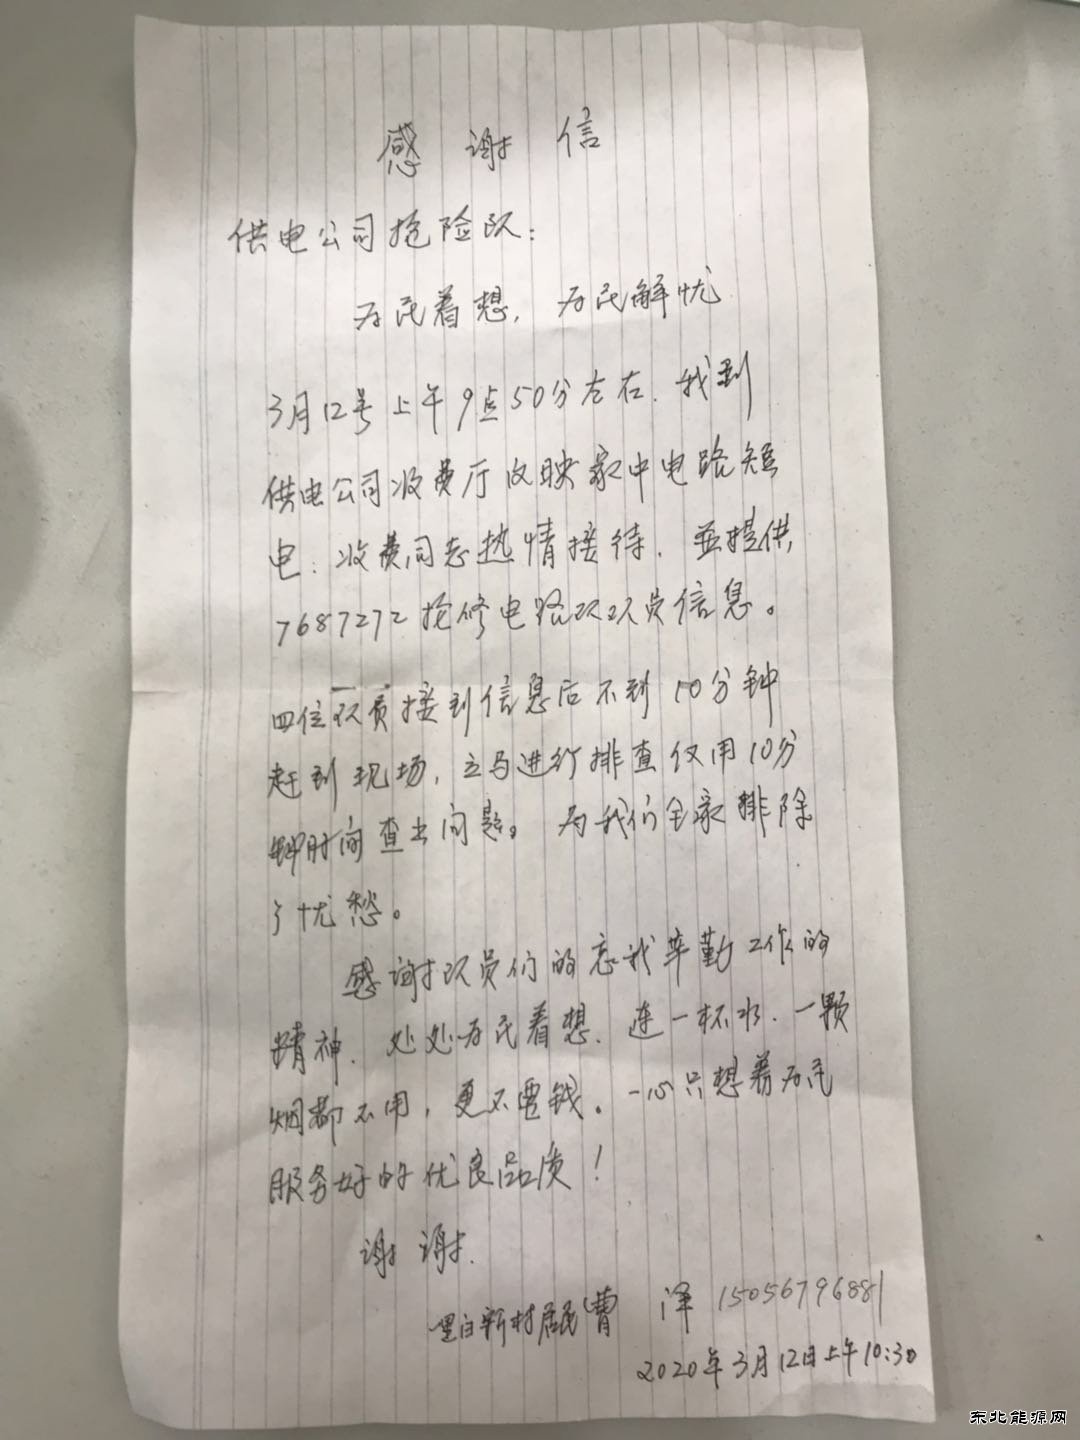 感谢信
供电公司抢险队：
为民着想，为民解忧
3月12号上午9点50分左右．我到
供电公司收费厅反映家中电路短
电．收费同志热情接待．并提供
7687272抢修电路队队员信息。
四位队员接到信息后不到10分钟
赶到现场，立马进行排查仅用10分
钟时间查出问题。为我们全家排除
了忧愁。
感谢队员们的忘我辛勤工作的
精神．处处为民着想．连一杯水．一颗
烟都不用，更不要钱。一心只想着为民
服务好的优良品质！
谢谢．
新村居民曹 泽 15056796881
2020年3月12日上午10:30
东北能源网